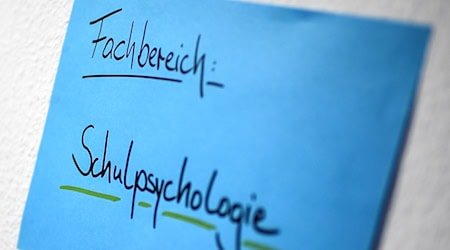 Fachbereich:
Schulpsychologie